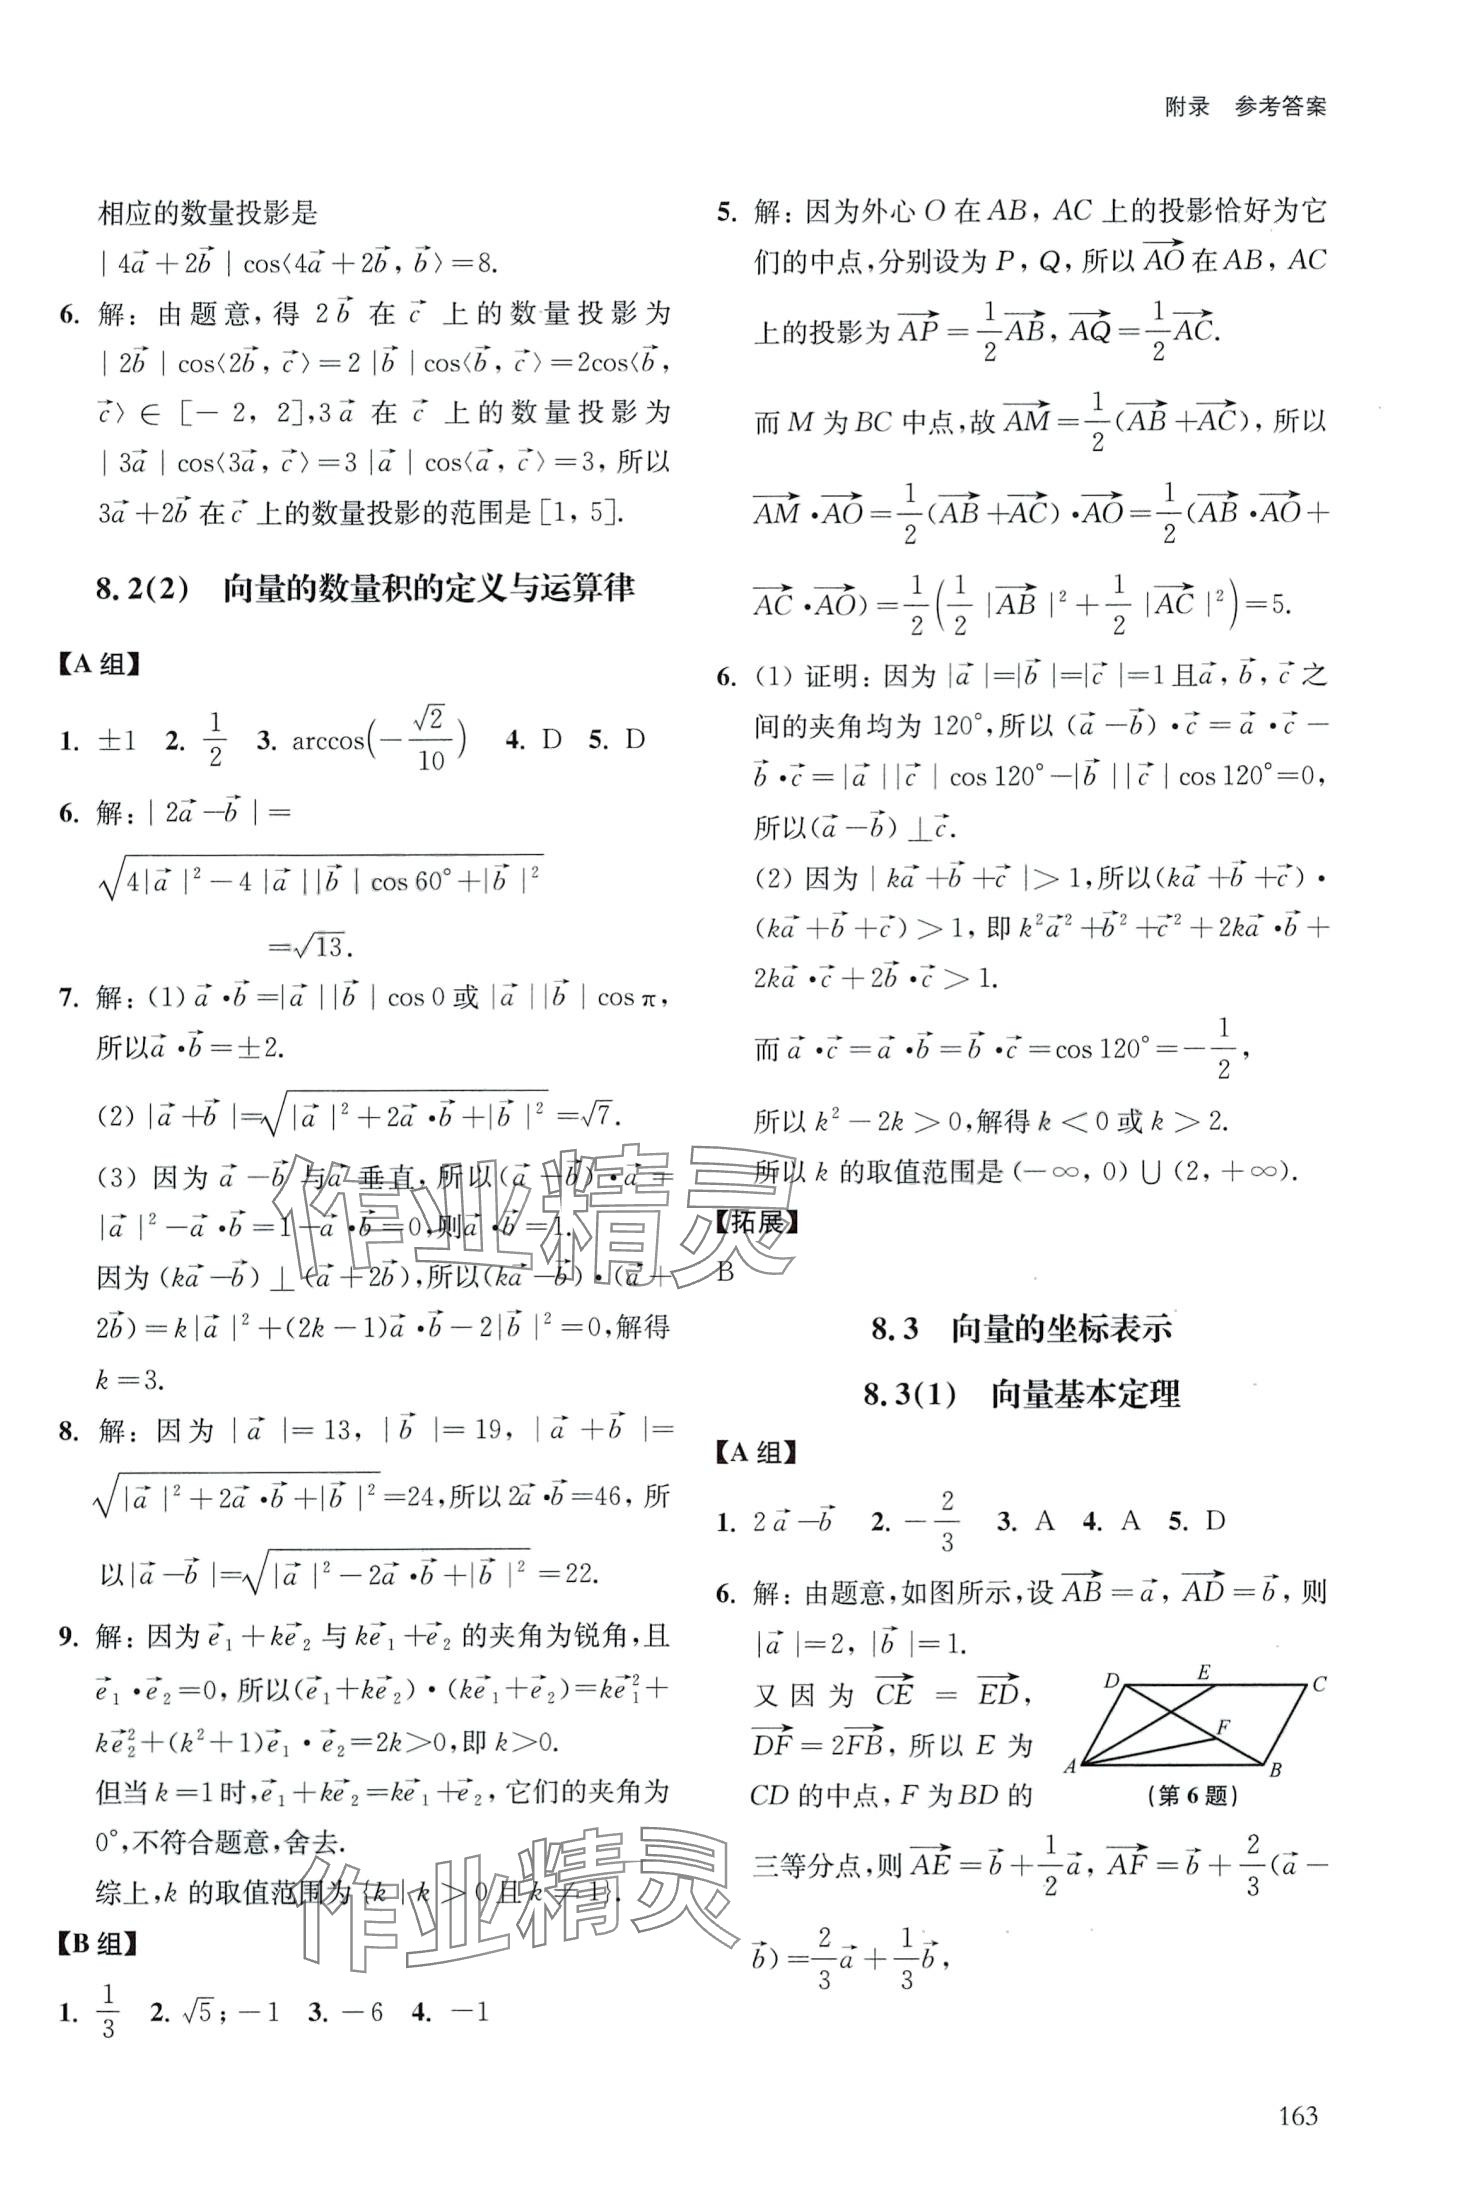 附录 参考答案
相应的数量投影是
|4a⃗+2b⃗|cos⟨4a⃗+2b⃗, b⃗⟩=8.
6. 解:由题意,得 2b⃗ 在 c⃗ 上的数量投影为
|2b⃗|cos⟨2b⃗, c⃗⟩=2|b⃗|cos⟨b⃗, c⃗⟩=2cos⟨b⃗,
c⃗⟩∈[-2, 2],3a⃗ 在 c⃗ 上的数量投影为
|3a⃗|cos⟨3a⃗, c⃗⟩=3|a⃗|cos⟨a⃗, c⃗⟩=3,所以
3a⃗+2b⃗ 在 c⃗ 上的数量投影的范围是[1, 5].
8.2(2) 向量的数量积的定义与运算律
【A 组】
1. ±1 2. 1/2 3. arccos(-√2/10) 4. D 5. D
6. 解:|2a⃗-b⃗|=
√(4|a⃗|²-4|a⃗||b⃗|cos60°+|b⃗|²)
=√13.
7. 解:(1) a⃗·b⃗=|a⃗||b⃗|cos0 或 |a⃗||b⃗|cosπ,
所以a⃗·b⃗=±2.
(2) |a⃗+b⃗|=√(|a⃗|²+2a⃗·b⃗+|b⃗|²)=√7.
(3) 因为 a⃗-b⃗ 与a⃗ 垂直,所以(a⃗-b⃗)·a⃗=
|a⃗|²-a⃗·b⃗=1-a⃗·b⃗=0,则a⃗·b⃗=1.
因为(ka⃗-b⃗)⊥(a⃗+2b⃗),所以(ka⃗-b⃗)·(a⃗+
2b⃗)=k|a⃗|²+(2k-1)a⃗·b⃗-2|b⃗|²=0,解得
k=3.
8. 解:因为|a⃗|=13, |b⃗|=19, |a⃗+b⃗|=
√(|a⃗|²+2a⃗·b⃗+|b⃗|²)=24,所以2a⃗·b⃗=46,所
以|a⃗-b⃗|=√(|a⃗|²-2a⃗·b⃗+|b⃗|²)=22.
9. 解:因为e⃗₁+ke⃗₂与ke⃗₁+e⃗₂的夹角为锐角,且
e⃗₁·e⃗₂=0,所以(e⃗₁+ke⃗₂)·(ke⃗₁+e⃗₂)=ke⃗₁²+
ke⃗₂²+(k²+1)e⃗₁·e⃗₂=2k>0,即k>0.
但当k=1时,e⃗₁+ke⃗₂=ke⃗₁+e⃗₂,它们的夹角为
0°,不符合题意,舍去.
综上,k 的取值范围为{k|k>0且k≠1}.
【B 组】
1. 1/3 2. √5;-1 3. -6 4. -1
5. 解:因为外心O在AB, AC上的投影恰好为它
们的中点,分别设为P, Q,所以AO→在AB, AC
上的投影为AP→=1/2AB→, AQ→=1/2AC→.
而M为BC中点,故AM→=1/2(AB→+AC→),所以
AM→·AO→=1/2(AB→+AC→)·AO→=1/2(AB→·AO→+
AC→·AO→)=1/2(1/2|AB→|²+1/2|AC→|²)=5.
6. (1) 证明:因为|a⃗|=|b⃗|=|c⃗|=1且a⃗, b⃗, c⃗之
间的夹角均为120°,所以(a⃗-b⃗)·c⃗=a⃗·c⃗-
b⃗·c⃗=|a⃗||c⃗|cos120°-|b⃗||c⃗|cos120°=0,
所以(a⃗-b⃗)⊥c⃗.
(2) 因为|ka⃗+b⃗+c⃗|>1,所以(ka⃗+b⃗+c⃗)·
(ka⃗+b⃗+c⃗)>1,即k²a⃗²+b⃗²+c⃗²+2ka⃗·b⃗+
2ka⃗·c⃗+2b⃗·c⃗>1.
而a⃗·c⃗=a⃗·b⃗=b⃗·c⃗=cos120°=-1/2,
所以k²-2k>0,解得k<0或k>2.
所以k的取值范围是(-∞, 0)∪(2, +∞).
【拓展】
B
8.3 向量的坐标表示
8.3(1) 向量基本定理
【A 组】
1. 2a⃗-b⃗ 2. -2/3 3. A 4. A 5. D
6. 解:由题意,如图所示,设AB→=a⃗, AD→=b⃗,则
|a⃗|=2, |b⃗|=1.
又因为CE→=ED→,
DF→=2FB→,所以E为
CD的中点,F为BD的
D E C
F
A B
(第6题)
三等分点,则AE→=b⃗+1/2a⃗, AF→=b⃗+2/3(a⃗-
b⃗)=2/3a⃗+1/3b⃗,
作业精灵
作业精灵
163